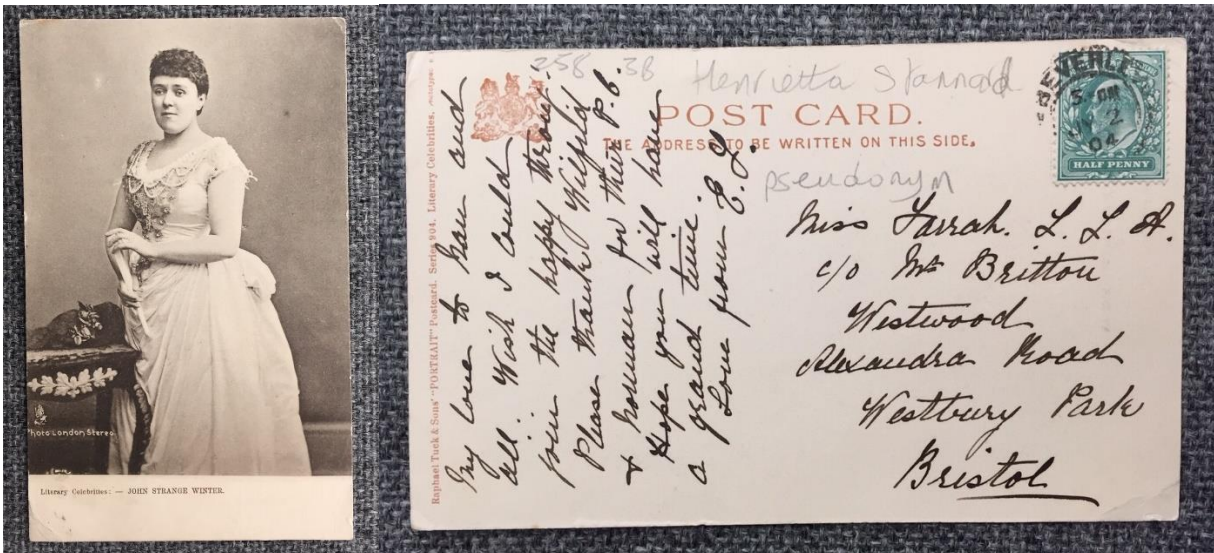 Photo London Stereo
Literary Celebrities: — JOHN STRANGE WINTER.
Raphael Tuck & Sons' "PORTRAIT" Postcard. Series 904. Literary Celebrities.
258 38 Henrietta Stannard
POST CARD.
THE ADDRESS TO BE WRITTEN ON THIS SIDE.
pseudonym
BEVERLEY
5 PM
2
04
HALF PENNY
My love to Nan and
all. Wish I could
join the happy throng.
Please thank Wilfrid
& Norman for their P.C.
Hope you will have
a grand time.
Love from E. J.
Miss Farrah. L. L. A.
c/o Mr Britton
Westwood
Alexandra Road
Westbury Park
Bristol